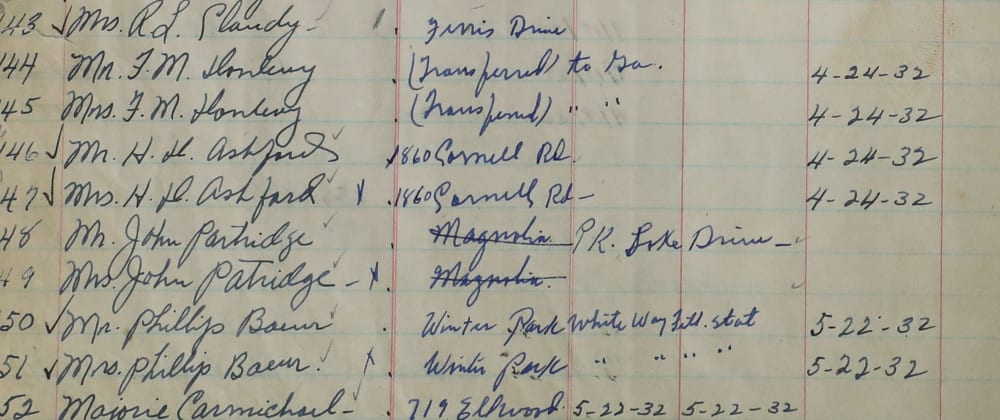 43 Mrs. R.L. Plandy - Ferris Drive
44 Mr. F.M. (Transferred) to Ga. 4-24-32
45 Mrs. F.M. (Transferred) " " 4-24-32
46 Mr. H.D. Ashford 1860 Cornell Rd. 4-24-32
47 Mrs. H.D. Ashford x 1860 Cornell Rd - 4-24-32
48 Mr. John Partridge Magnolia P.K. Lake Drive -
49 Mrs. John Patridge - x Magnolia
50 Mr. Phillip Winter Park White Way Fill. Stat 5-22-32
51 Mrs. Phillip x Winter Park " " " " 5-22-32
52 Marjorie Carmichael - 719 Elkwood 5-22-32 5-22-32